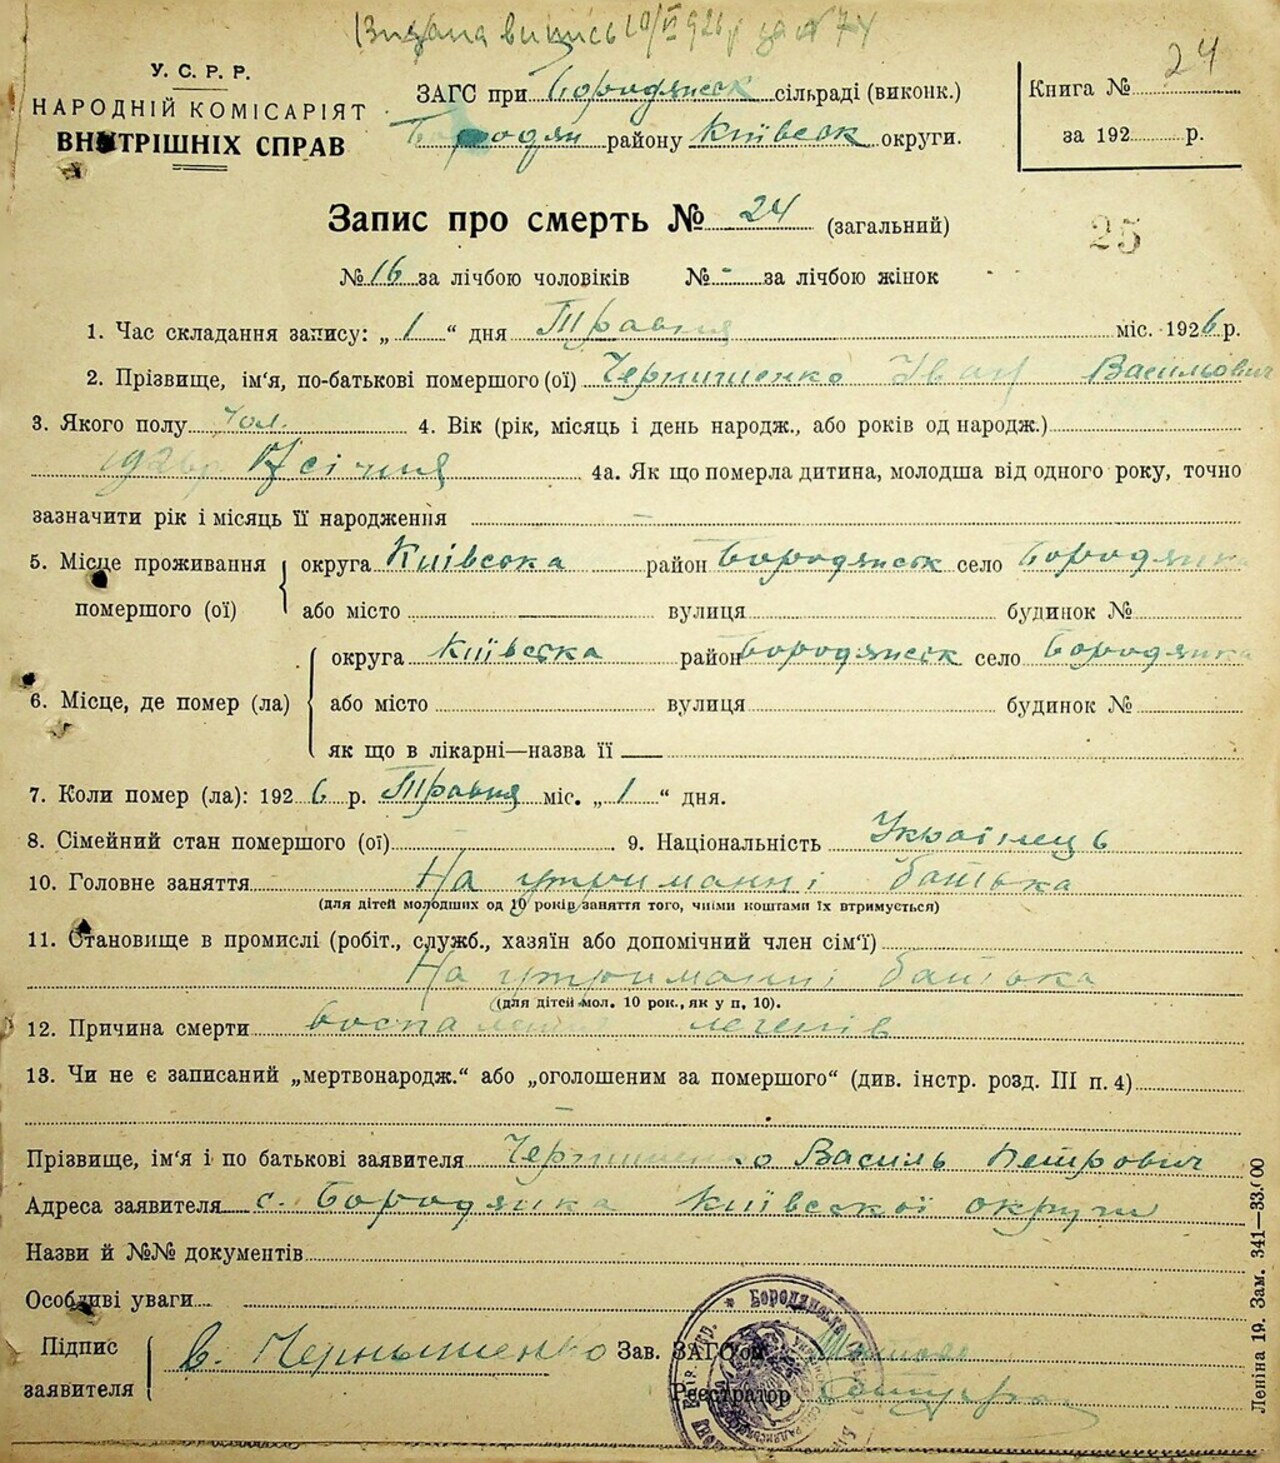 Видана випись 10/VI 926 р за № 74
У. С. Р. Р.
НАРОДНІЙ КОМІСАРІЯТ
ВНУТРІШНІХ СПРАВ
ЗАГС при Бородянськ сільраді (виконк.)
Бородян району Київськ округи.
Книга № 24
за 192 р.
Запис про смерть № 24 (загальний)
25
№ 16 за лічбою чоловіків № - за лічбою жінок
1. Час складання запису: „ 1 “ дня Травня міс. 1926 р.
2. Прізвище, ім‘я, по-батькові помершого (ої) Чернишенко Іван Василювич
3. Якого полу Чол. 4. Вік (рік, місяць і день народж., або років од народж.)
1926р січня 4а. Як що померла дитина, молодша від одного року, точно
зазначити рік і місяць її народження —
5. Місце проживання помершого (ої)
округа Київська район Бородянськ село Бородянка
або місто вулиця будинок №
6. Місце, де помер (ла)
округа Київська район Бородянськ село Бородянка
або місто вулиця будинок №
як що в лікарні—назва її
7. Коли помер (ла): 1926 р. Травня міс. „ 1 “ дня.
8. Сімейний стан помершого (ої) — 9. Національність Українець
10. Головне заняття На утриманні батька
(для дітей молодших од 10 років заняття того, чиїми коштами їх втримується)
11. Становище в промислі (робіт., служб., хазяїн або допомічний член сім‘ї)
На утриманні батька
(для дітей мол. 10 рок., як у п. 10).
12. Причина смерти воспаление легенів
13. Чи не є записаний „мертвонародж.“ або „оголошеним за помершого“ (див. інстр. розд. III п. 4)
—
Прізвище, ім‘я і по батькові заявителя Чернишенко Василь Петрович
Адреса заявителя с. Бородянка Київської округи
Назви й №№ документів
Особливі уваги
Підпис заявителя В. Чернышенко
Зав. ЗАГС‘ом
Реєстратор
Бородянськ
Леніна 19. Зам. 341—33.000